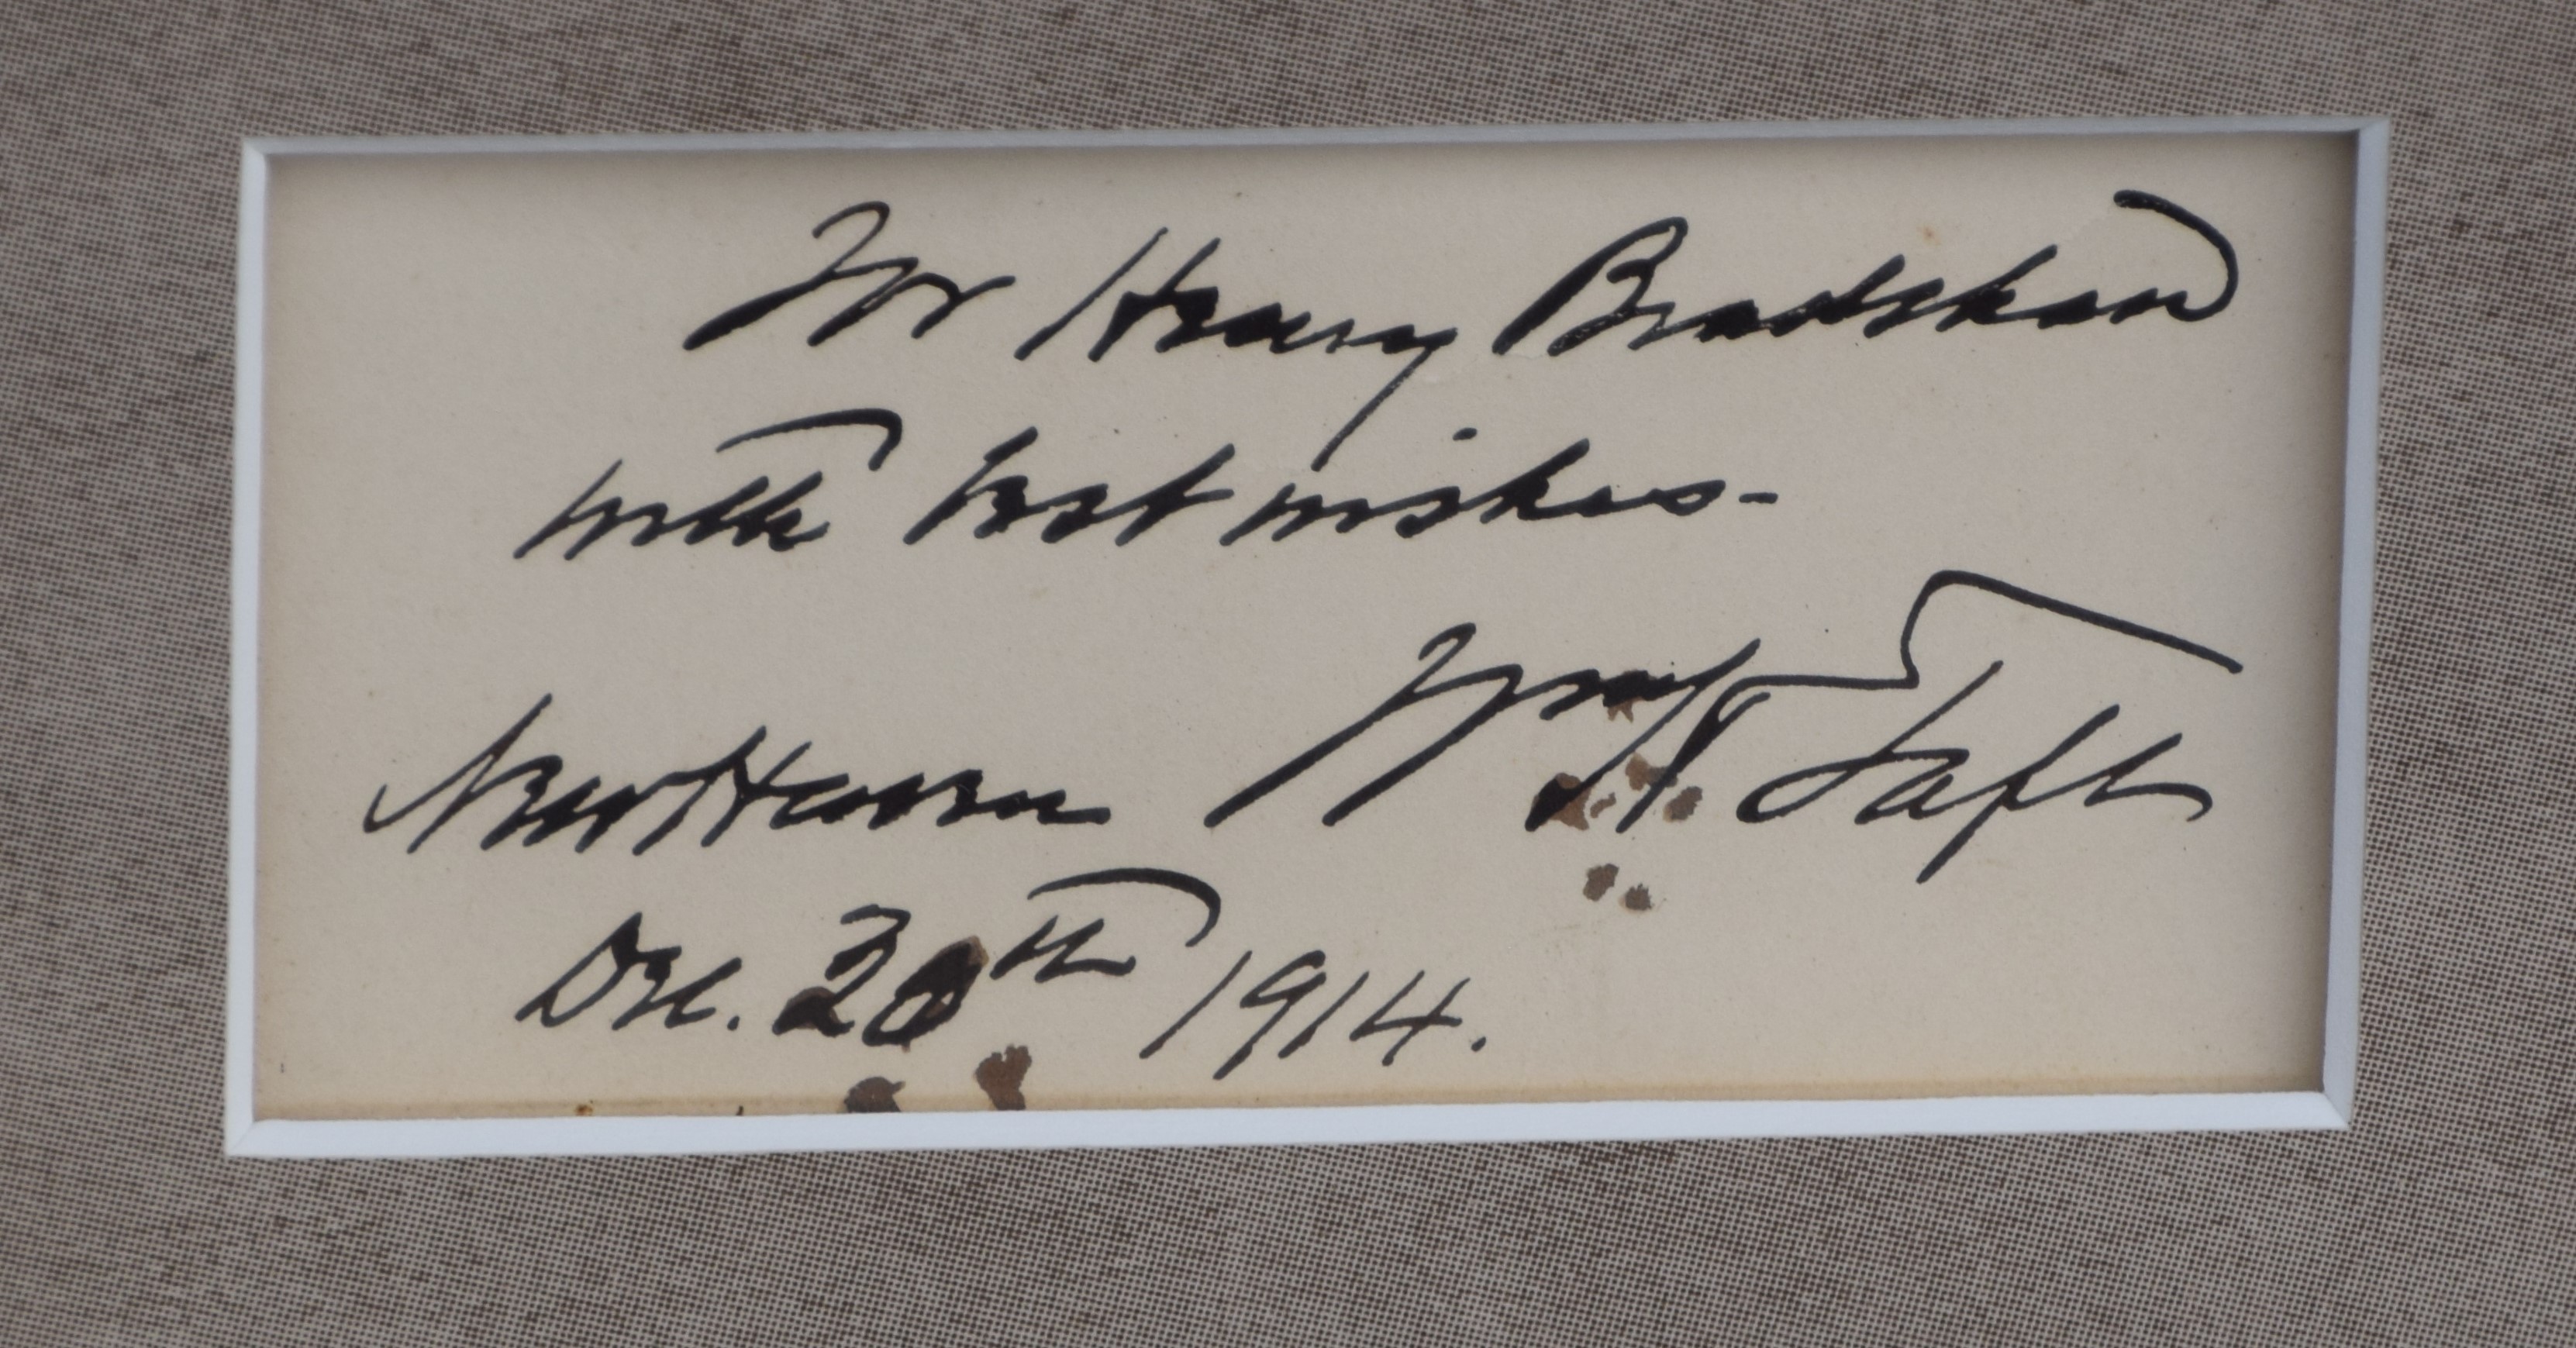 For Henry Bradshaw
with best wishes-
Wm H. Taft
New Haven
Dec. 20th 1914.